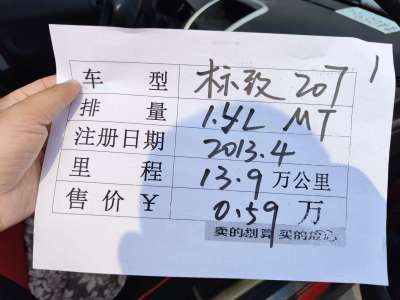 车型 标致 207 1
排量 1.4L MT
注册日期 2013.4
里程 13.9 万公里
售价￥ 0.59 万
卖的划算 买的放心